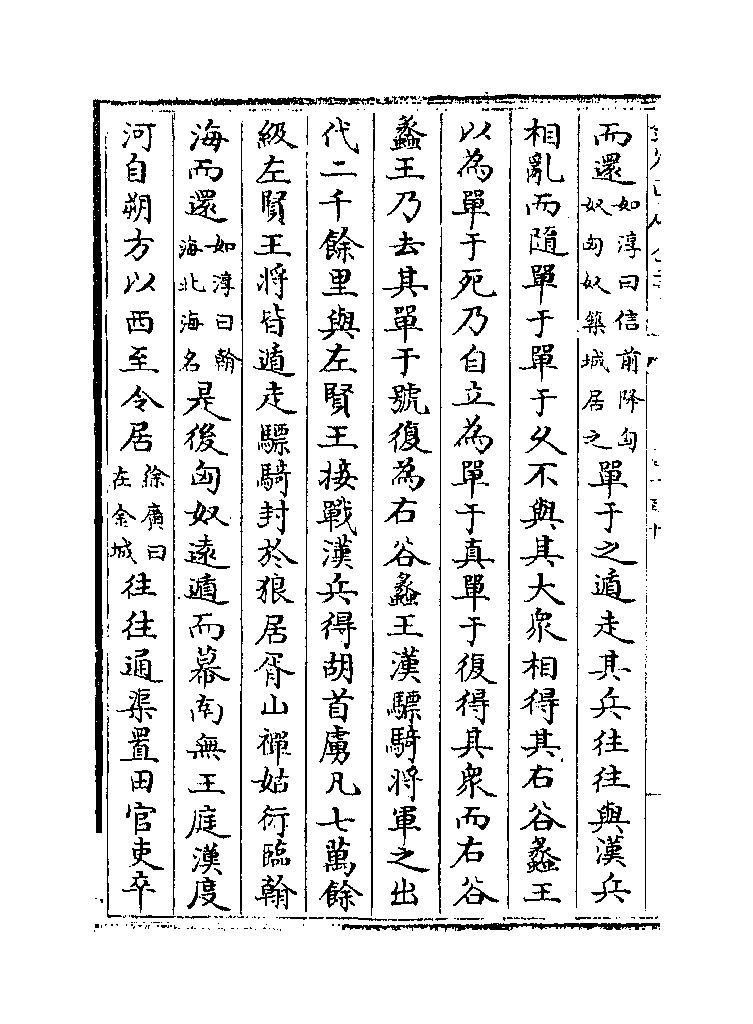 而還如淳曰信前降匈奴匈奴築城居之單于之遁走其兵往往與漢兵
相亂而隨單于單于久不與其大衆相得其右谷蠡王
以為單于死乃自立為單于真單于復得其衆而右谷
蠡王乃去其單于號復為右谷蠡王漢驃騎將軍之出
代二千餘里與左賢王接戰漢兵得胡首虜凡七萬餘
級左賢王將皆遁走驃騎封於狼居胥山禪姑衍臨翰
海而還如淳曰翰海北海名是後匈奴遠遁而幕南無王庭漢度
河自朔方以西至令居徐廣曰在金城往往通渠置田官吏卒